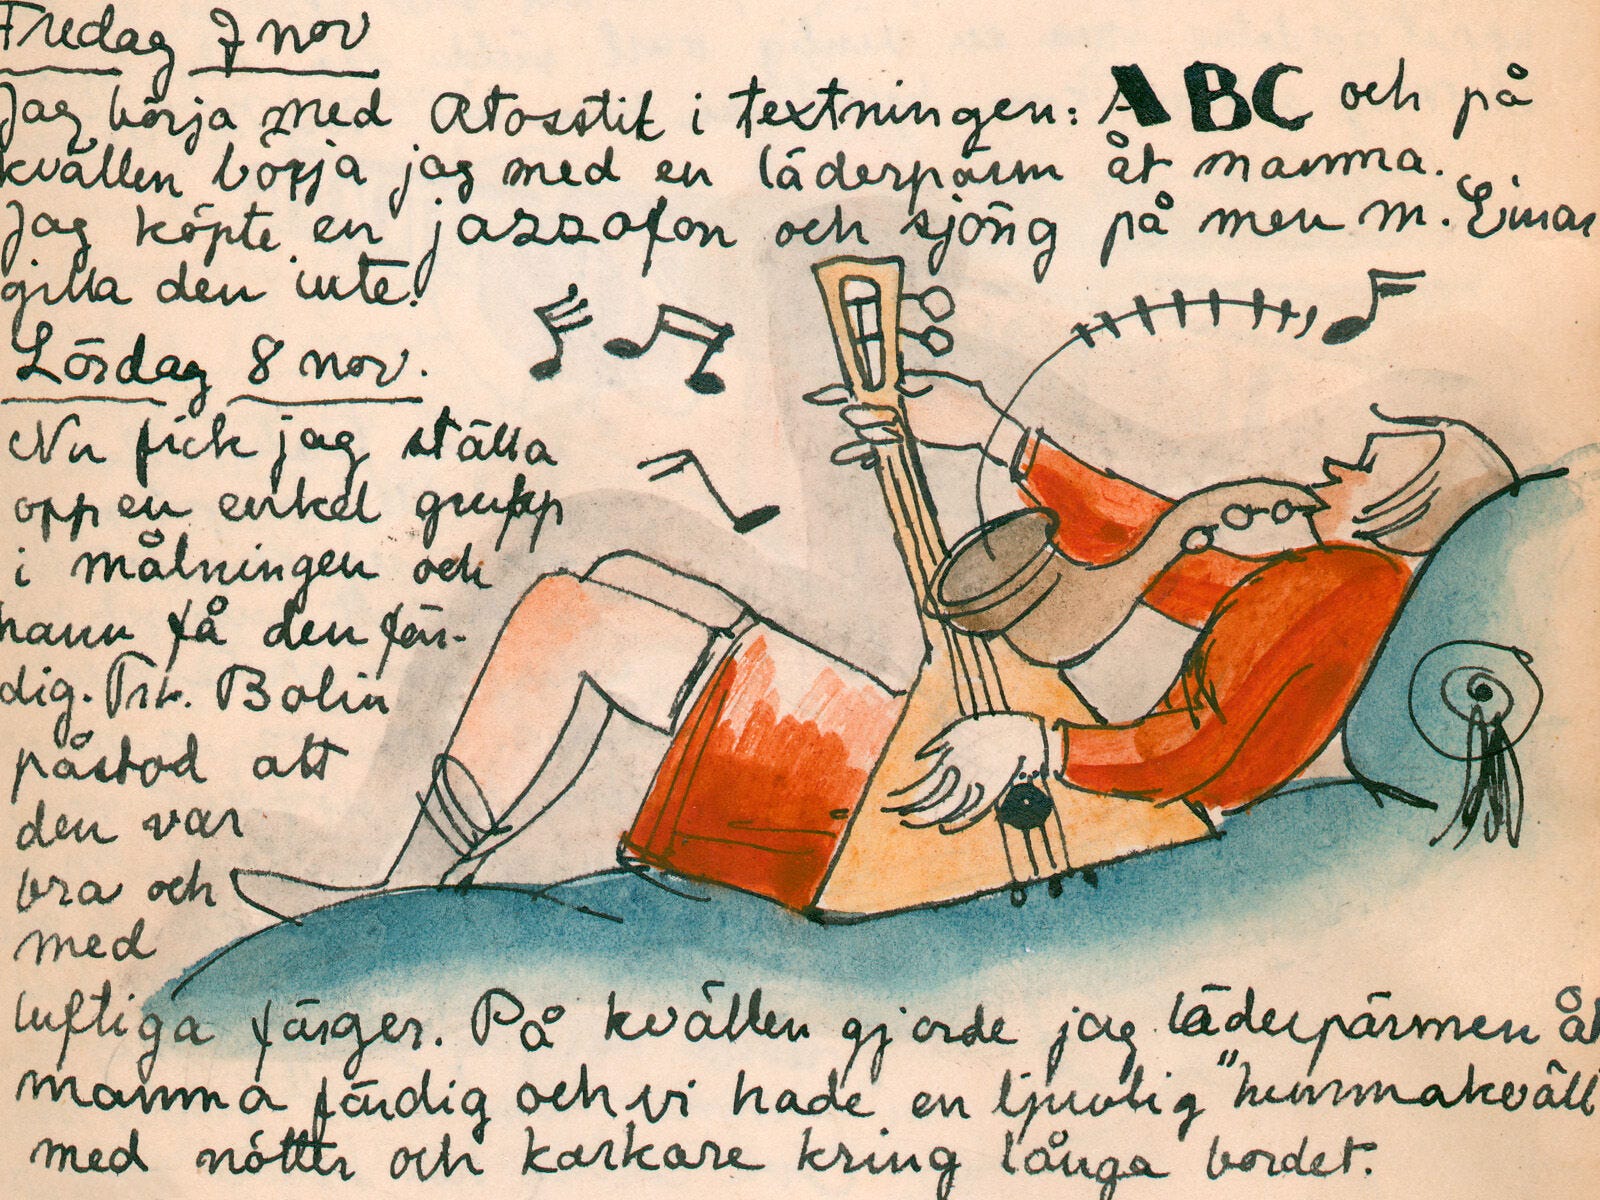 Fredag 7 nov
Jag börja med Atosstil i textningen: ABC och på
kvällen börja jag med en läderpärm åt mamma.
Jag köpte en jazzofon och sjöng på men M. Einar
gilla den inte.
Lördag 8 nov.
Nu fick jag ställa
opp en enkel grupp
i målningen och
hann få den fär-
dig. Frk. Bolin
påstod att
den var
bra och
med
luftiga färger. På kvällen gjorde jag läderpärmen åt
mamma färdig och vi hade en ljuvlig "hemmakväll
med nötter och karkare kring långa bordet.